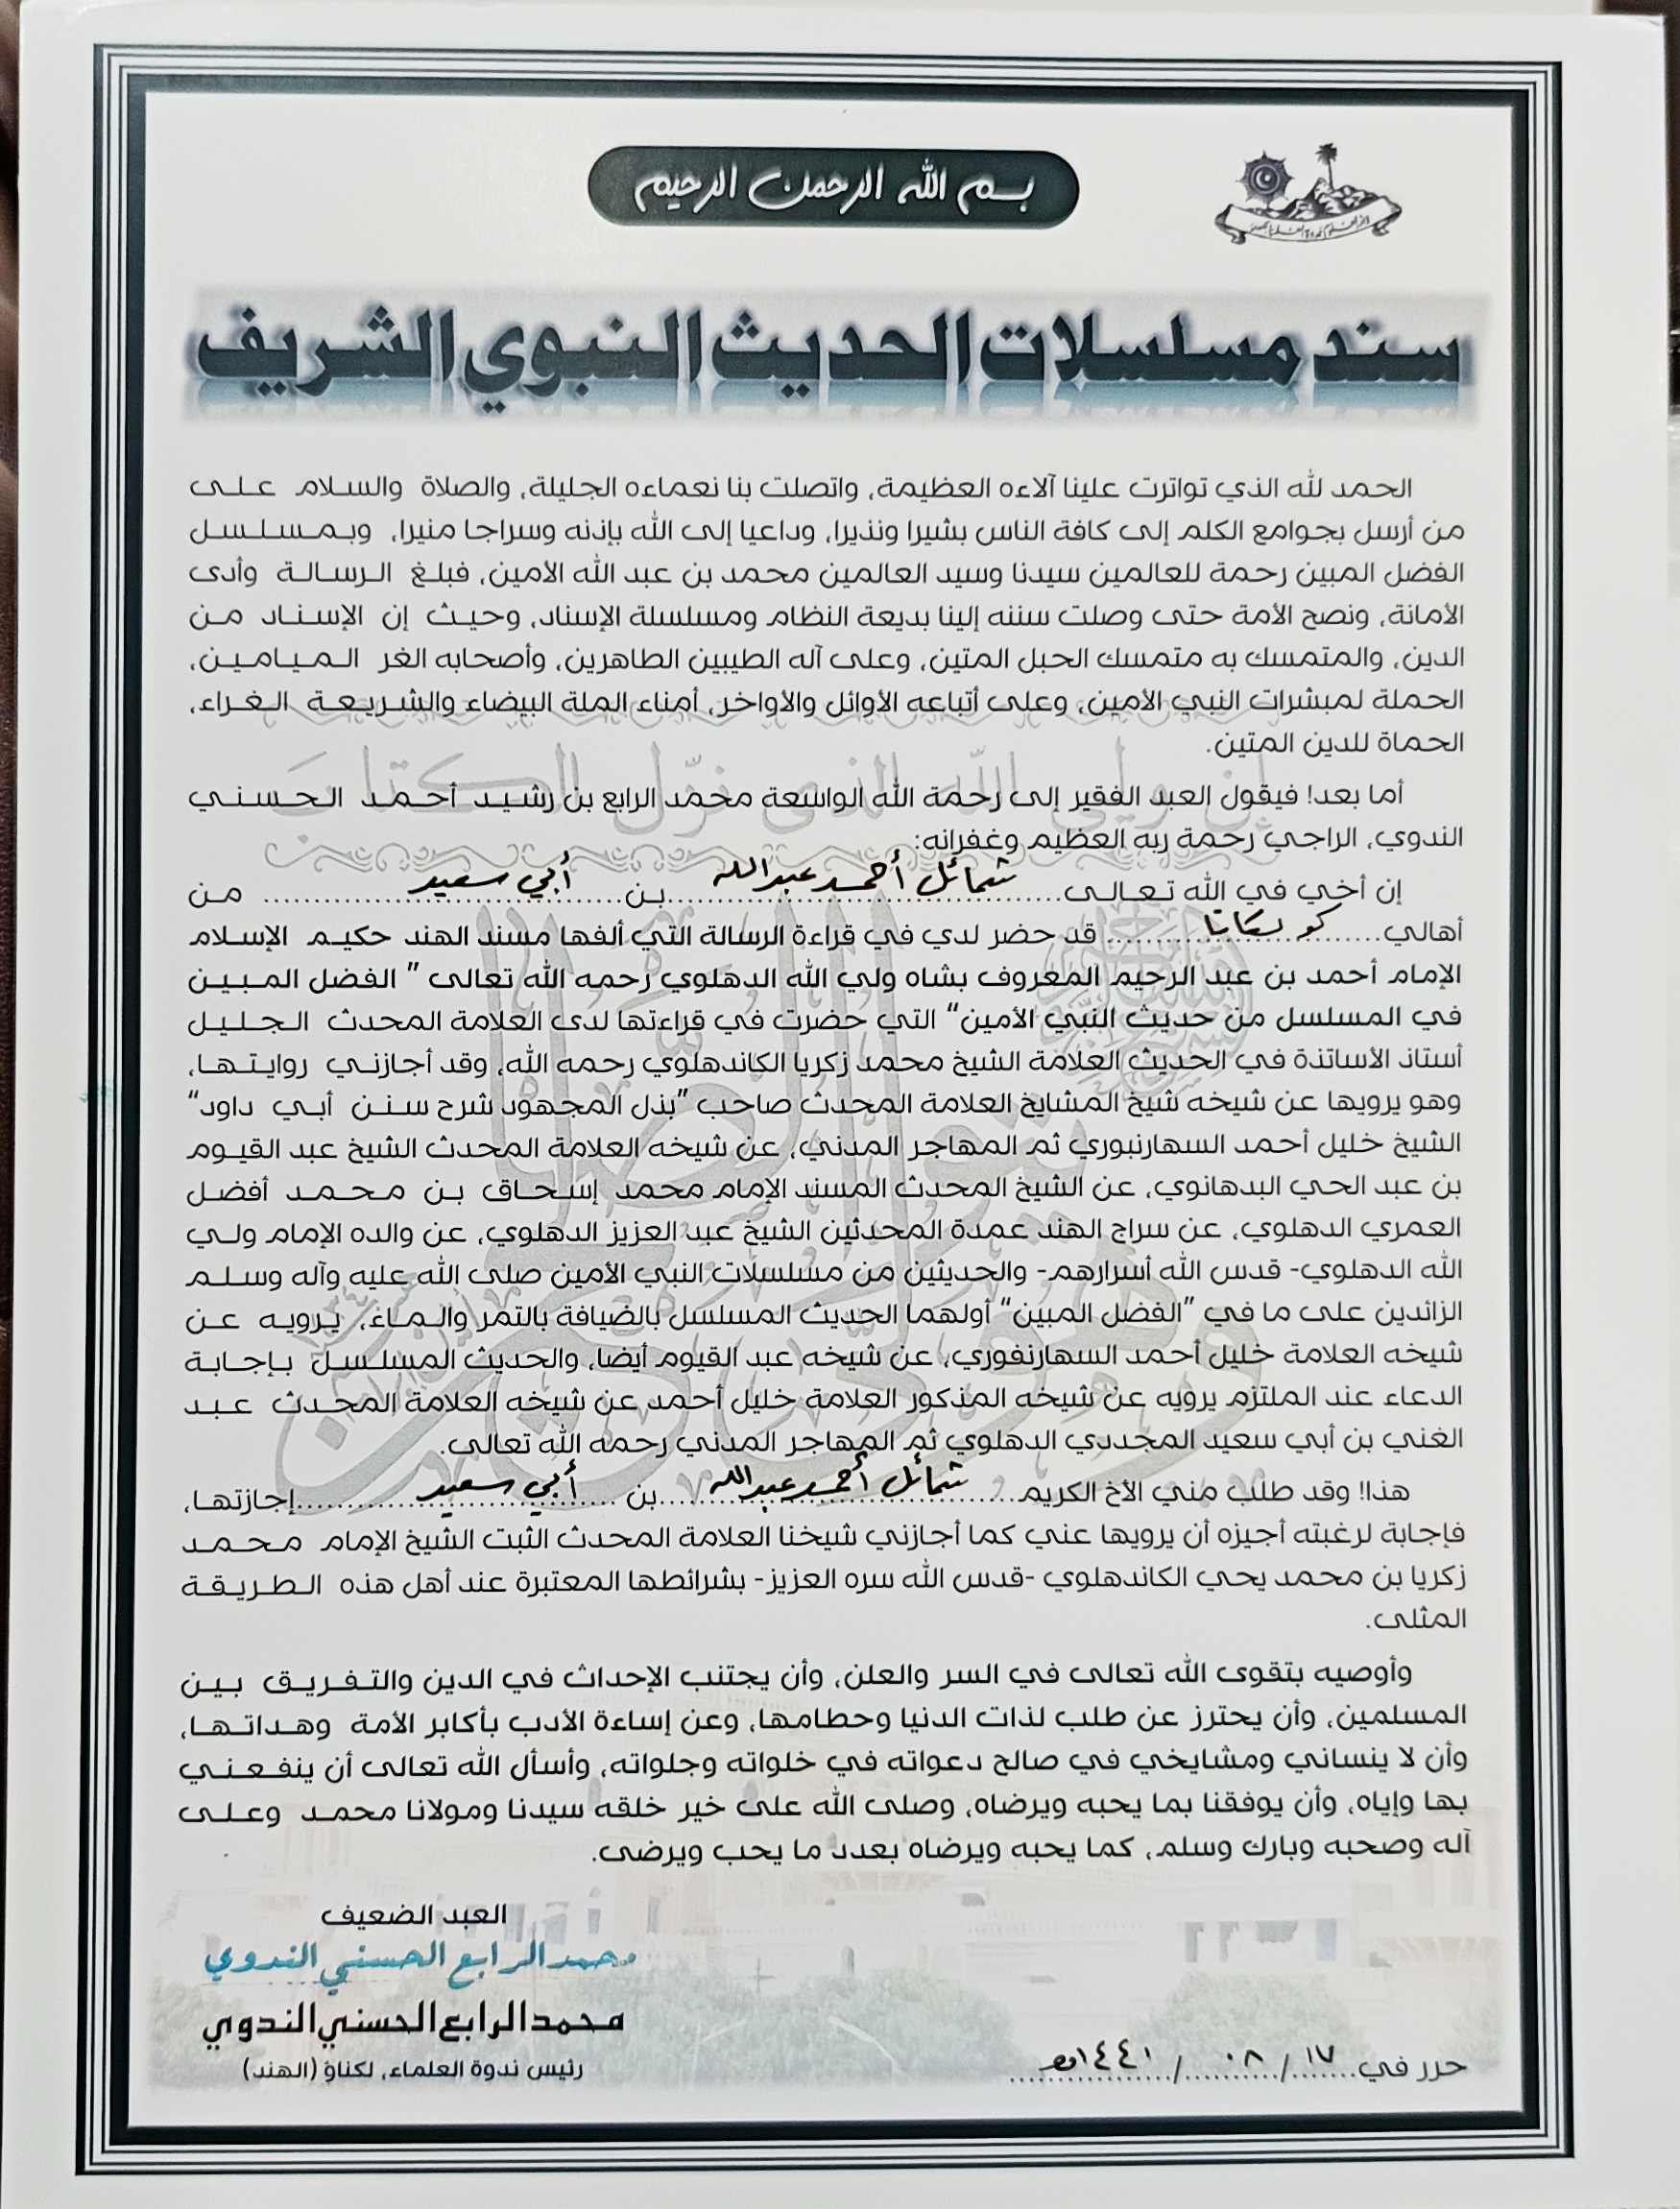 بسم الله الرحمن الرحيم
سند مسلسلات الحديث النبوي الشريف
الحمد لله الذي تواترت علينا آلاءه العظيمة، واتصلت بنا نعماءه الجليلة، والصلاة والسلام على
من أرسل بجوامع الكلم إلى كافة الناس بشيرا ونذيرا، وداعيا إلى الله بإذنه وسراجا منيرا، وبمسلسل
الفضل المبين رحمة للعالمين سيدنا وسيد العالمين محمد بن عبد الله الأمين، فبلغ الرسالة وأدى
الأمانة، ونصح الأمة حتى وصلت سننه إلينا بديعة النظام ومسلسلة الإسناد، وحيث إن الإسناد من
الدين، والمتمسك به متمسك الحبل المتين، وعلى آله الطيبين الطاهرين، وأصحابه الغر الميامين،
الحملة لمبشرات النبي الأمين، وعلى أتباعه الأوائل والأواخر، أمناء الملة البيضاء والشريعة الغراء،
الحماة للدين المتين.
أما بعد! فيقول العبد الفقير إلى رحمة الله الواسعة محمد الرابع بن رشيد أحمد الحسني
الندوي، الراجي رحمة ربه العظيم وغفرانه:
إن أخي في الله تعالى شمائل أحمد عبدالله بن أبي سعيد من
أهالي قد حضر لدي في قراءة الرسالة التي ألفها مسند الهند حكيم الإسلام
الإمام أحمد بن عبد الرحيم المعروف بشاه ولي الله الدهلوي رحمه الله تعالى " الفضل المبين
في المسلسل من حديث النبي الأمين" التي حضرت في قراءتها لدى العلامة المحدث الجليل
أستاذ الأساتذة في الحديث العلامة الشيخ محمد زكريا الكاندهلوي رحمه الله، وقد أجازني روايتها،
وهو يرويها عن شيخه شيخ المشايخ العلامة المحدث صاحب "بذل المجهود شرح سنن أبي داود"
الشيخ خليل أحمد السهارنبوري ثم المهاجر المدني، عن شيخه العلامة المحدث الشيخ عبد القيوم
بن عبد الحي البدهانوي، عن الشيخ المحدث المسند الإمام محمد إسحاق بن محمد أفضل
العمري الدهلوي، عن سراج الهند عمدة المحدثين الشيخ عبد العزيز الدهلوي، عن والده الإمام ولي
الله الدهلوي- قدس الله أسرارهم- والحديثين من مسلسلات النبي الأمين صلى الله عليه وآله وسلم
الزائدين على ما في "الفضل المبين" أولهما الحديث المسلسل بالضيافة بالتمر والماء، يرويه عن
شيخه العلامة خليل أحمد السهارنفوري، عن شيخه عبد القيوم أيضا، والحديث المسلسل بإجابة
الدعاء عند الملتزم يرويه عن شيخه المذكور العلامة خليل أحمد عن شيخه العلامة المحدث عبد
الغني بن أبي سعيد المجددي الدهلوي ثم المهاجر المدني رحمه الله تعالى.
هذا! وقد طلب مني الأخ الكريم شمائل أحمد عبدالله بن أبي سعيد إجازتها،
فإجابة لرغبته أجيزه أن يرويها عني كما أجازني شيخنا العلامة المحدث الثبت الشيخ الإمام محمد
زكريا بن محمد يحي الكاندهلوي -قدس الله سره العزيز- بشرائطها المعتبرة عند أهل هذه الطريقة
المثلى.
وأوصيه بتقوى الله تعالى في السر والعلن، وأن يجتنب الإحداث في الدين والتفريق بين
المسلمين، وأن يحترز عن طلب لذات الدنيا وحطامها، وعن إساءة الأدب بأكابر الأمة وهداتها،
وأن لا ينساني ومشايخي في صالح دعواته في خلواته وجلواته، وأسأل الله تعالى أن ينفعني
بها وإياه، وأن يوفقنا بما يحبه ويرضاه، وصلى الله على خير خلقه سيدنا ومولانا محمد وعلى
آله وصحبه وبارك وسلم، كما يحبه ويرضاه بعدد ما يحب ويرضى.
العبد الضعيف
محمد الرابع الحسني الندوي
محمد الرابع الحسني الندوي
رئيس ندوة العلماء، لكناؤ (الهند)
حرر في ١٧ / ٠٨ / ١٤٤١هـ